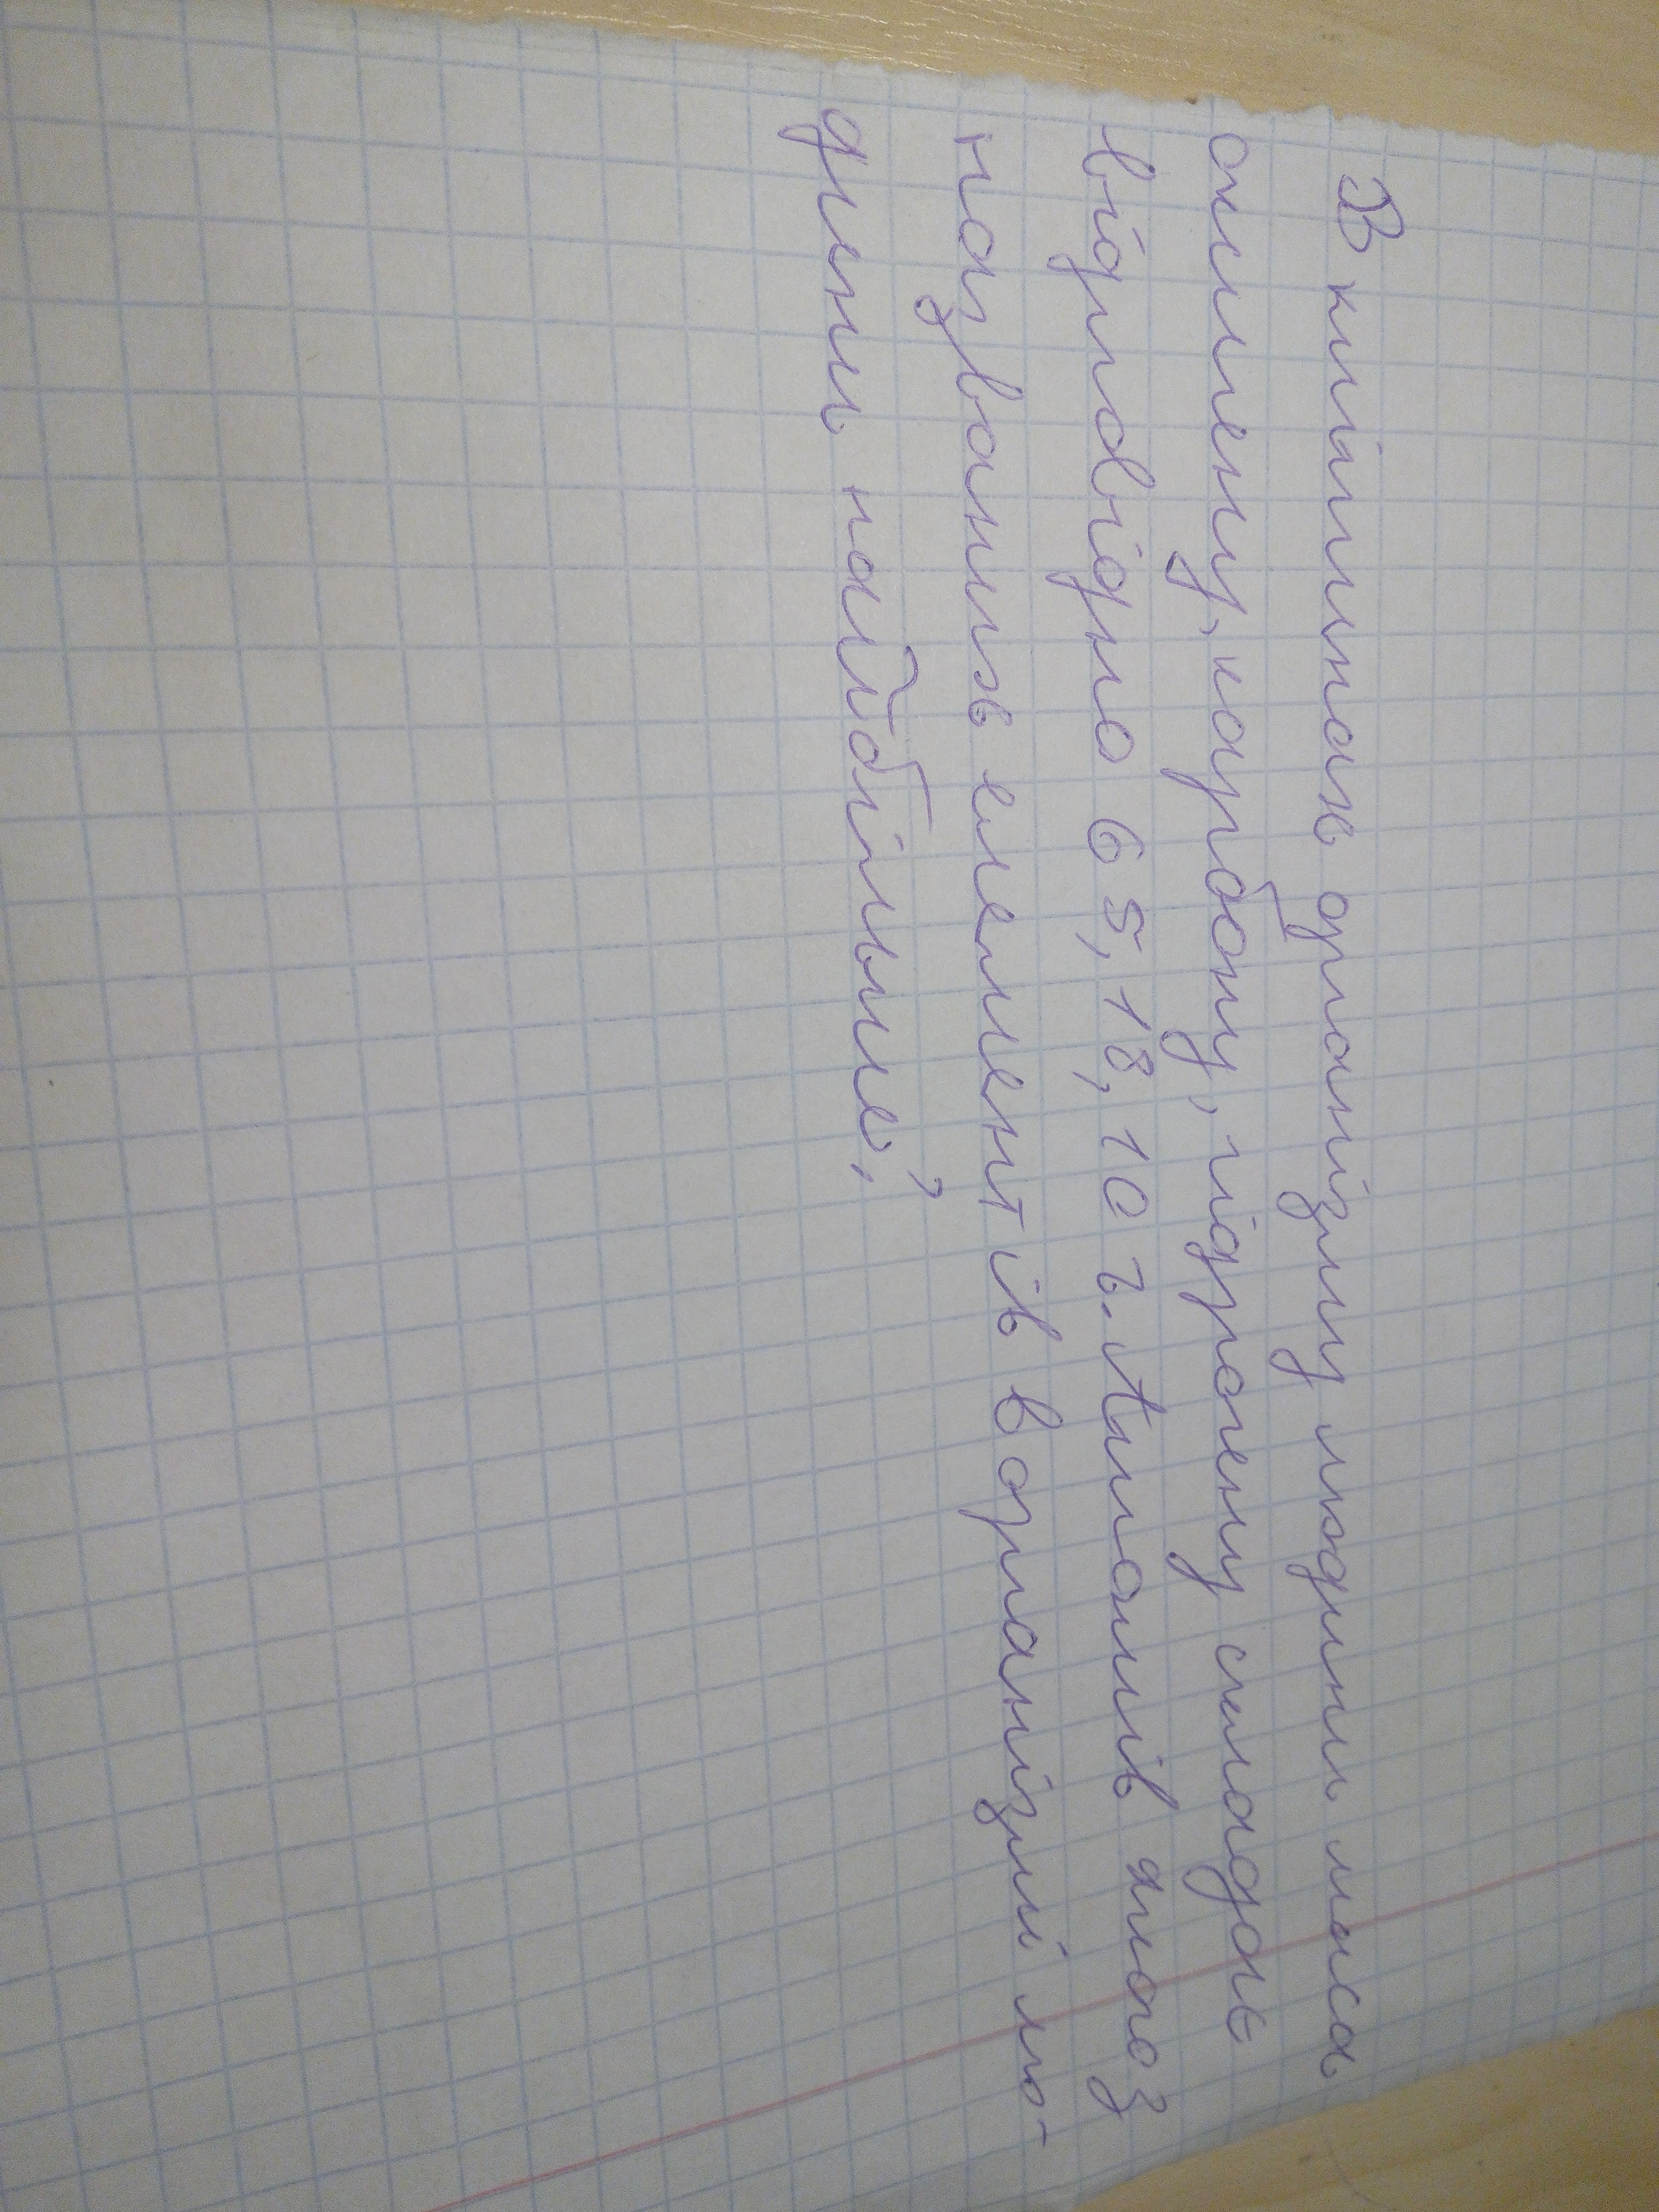 В клітинах організму людини маса
оксигену, карбону, гідрогену складає
відповідно 65, 18, 10 г. Атомів якого з
названих елементів в організмі лю-
дини найбільше?